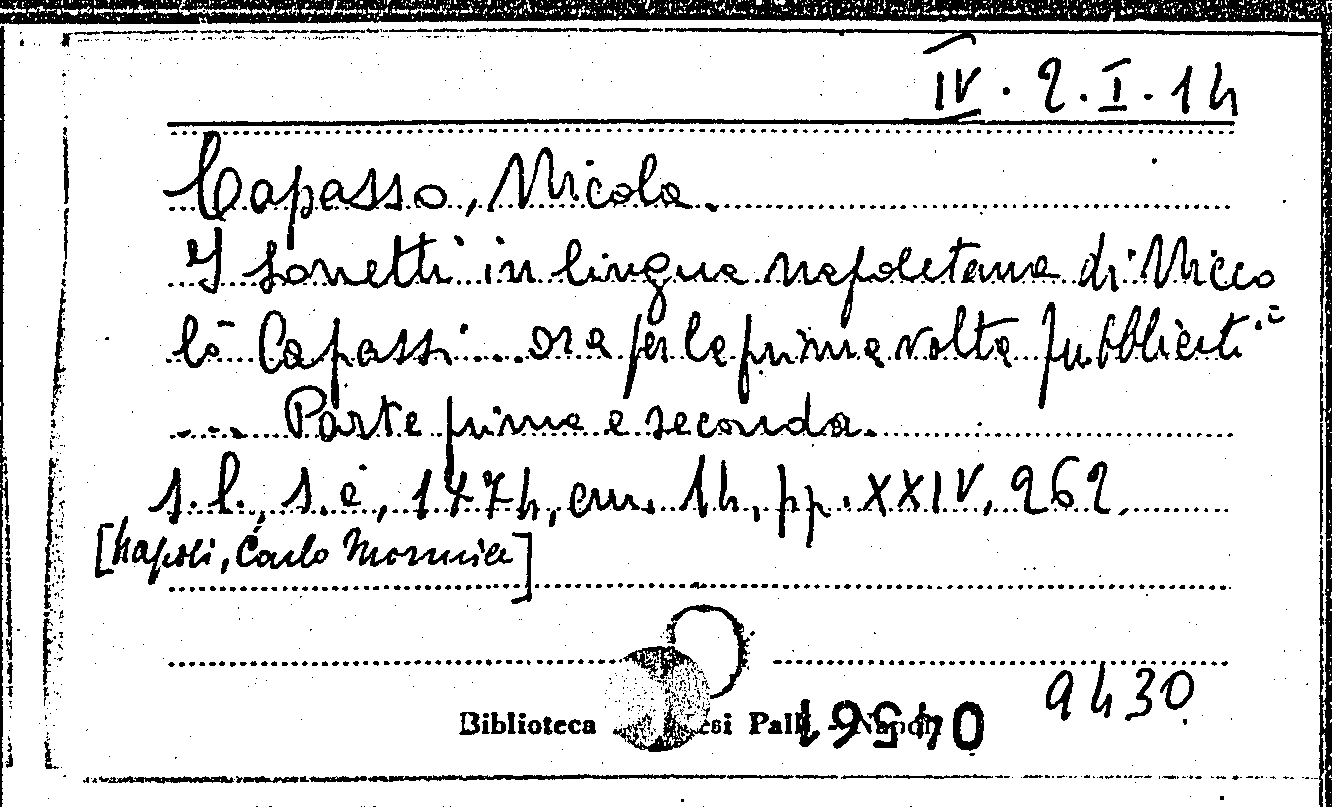 IV. 2. I. 14
Capasso, Nicola.
I sonetti in lingua napoletana di Nicco
lò Capassi ... ora per la prima volta pubblicati
... Parte prima e seconda.
s.l., s.e, 1774, cm. 14, pp. XXIV, 262.
[Napoli, Carlo Mormile]
9430
Biblioteca esi Palli - Napoli
04561